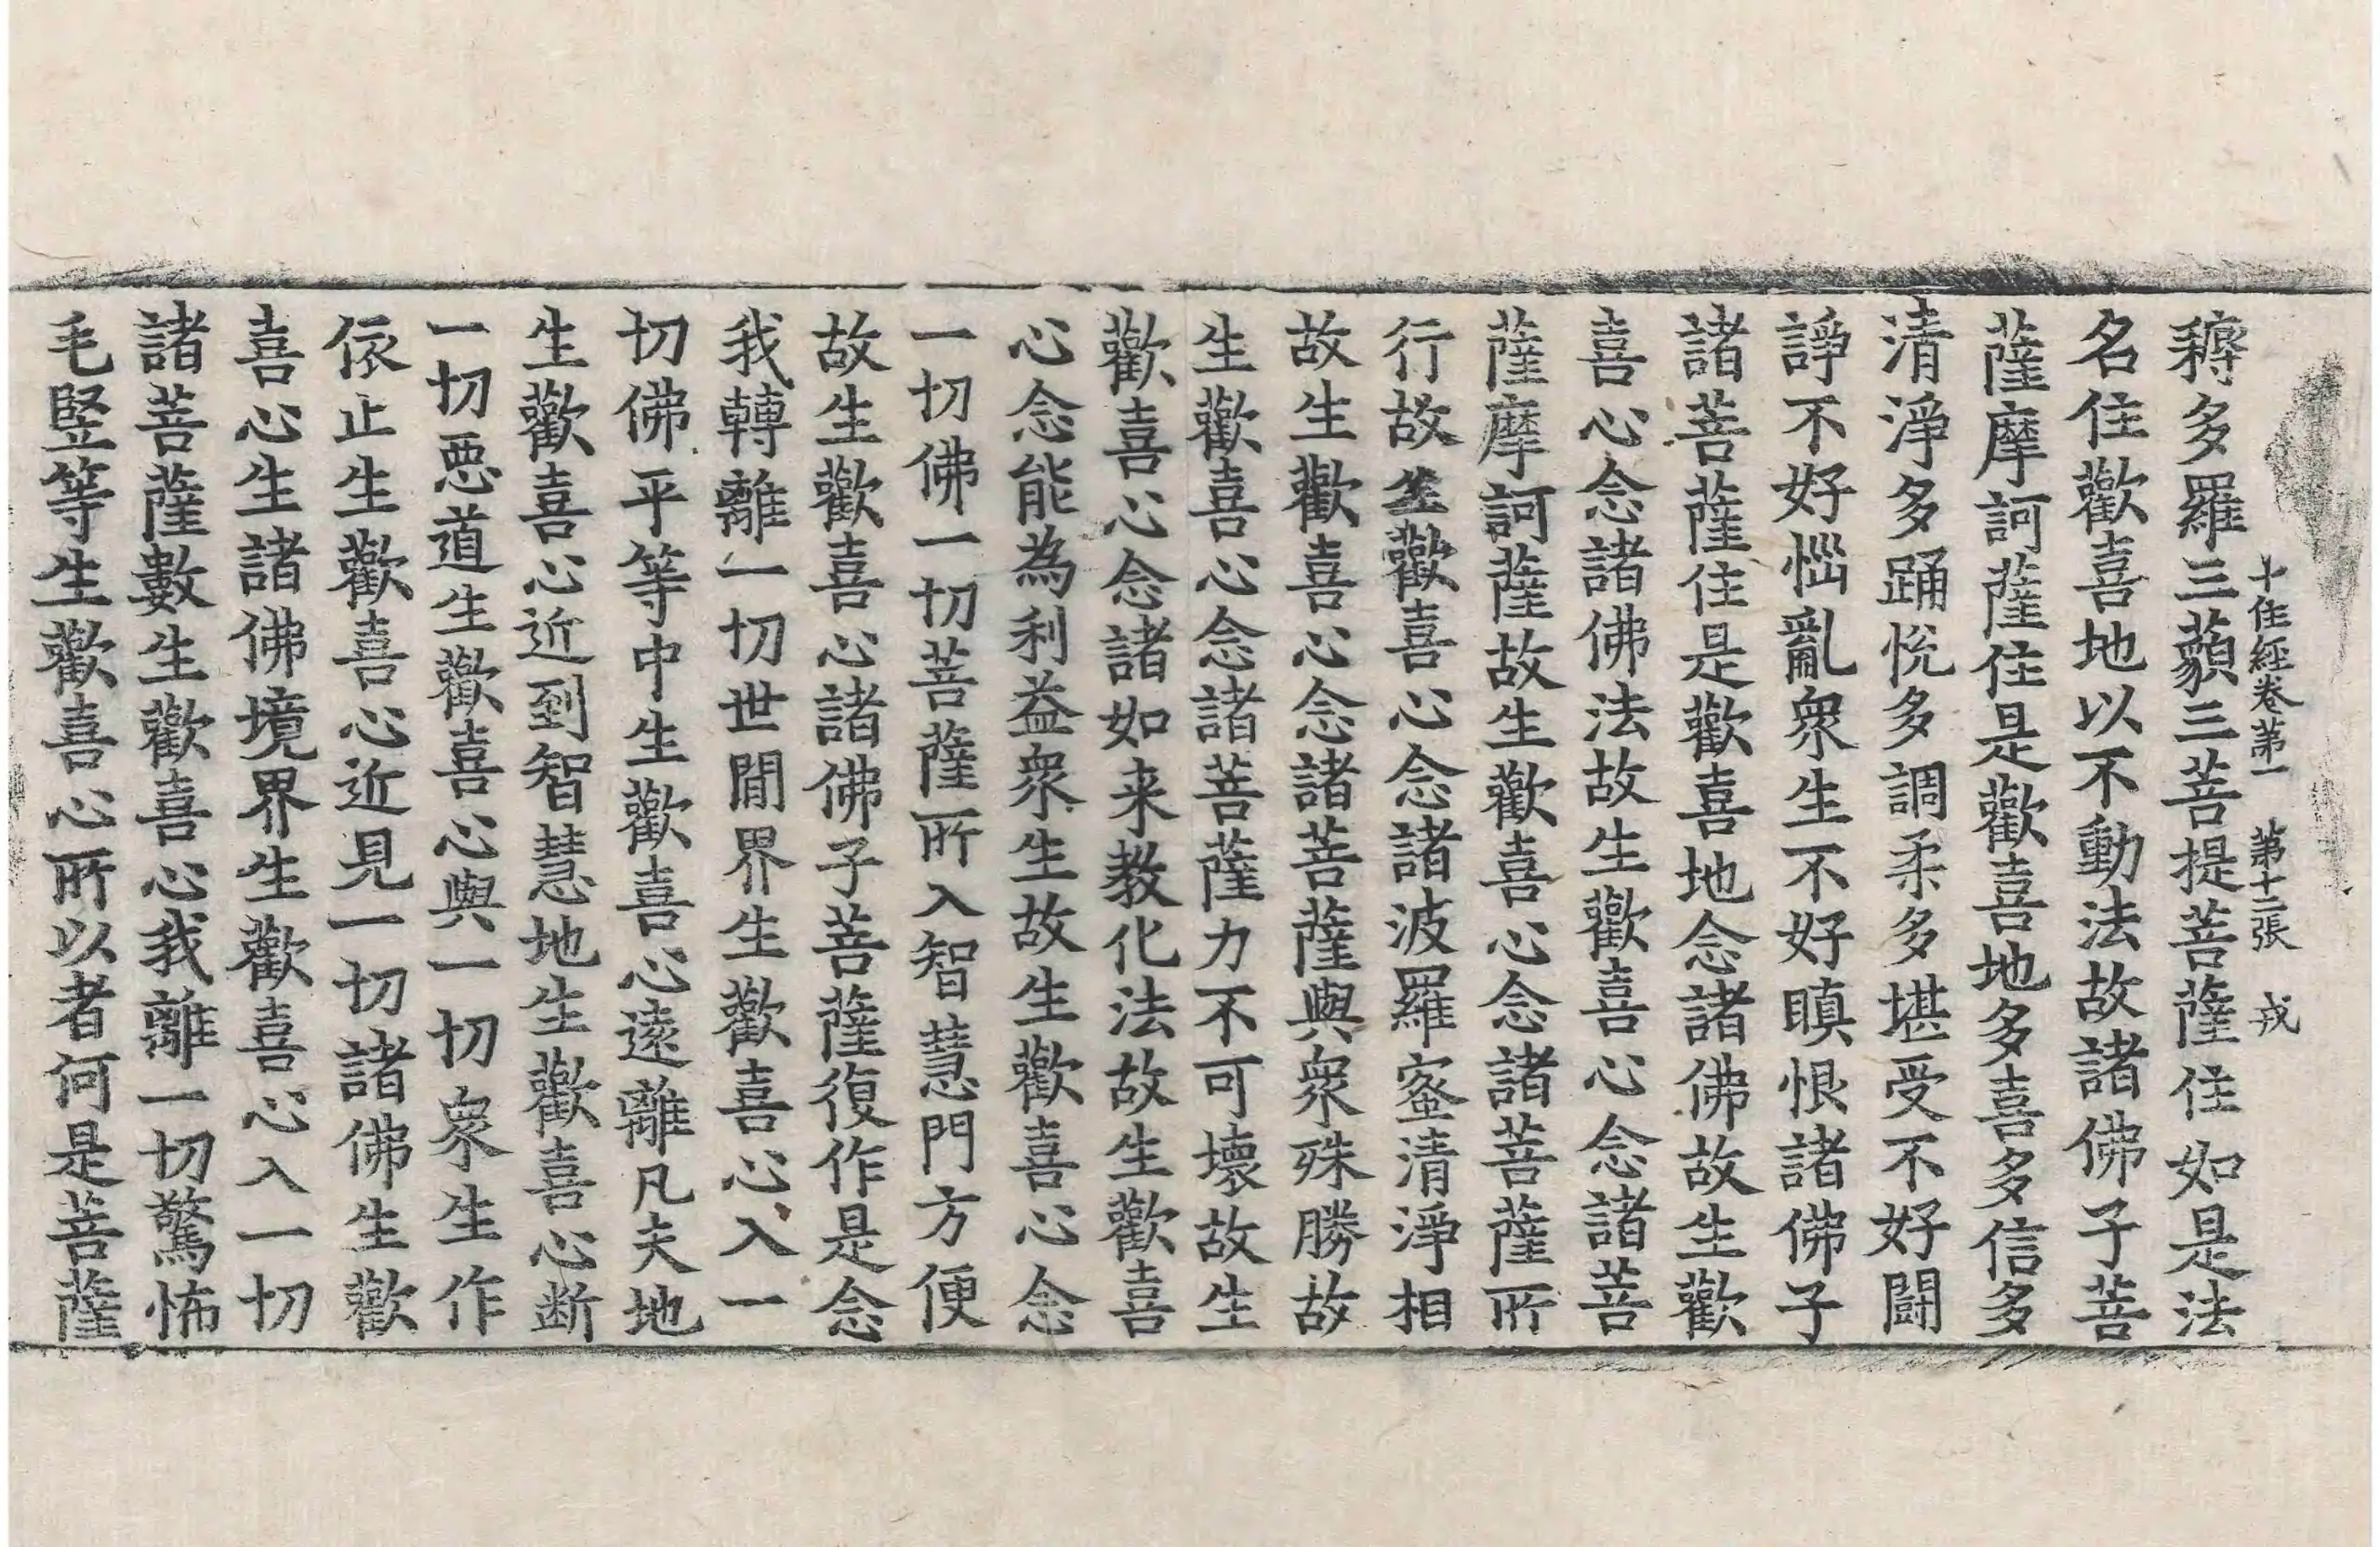 十住經卷第一 第十二張 戎
耨多羅三藐三菩提菩薩住如是法
名住歡喜地以不動法故諸佛子菩
薩摩訶薩住是歡喜地多喜多信多
清淨多踊悅多調柔多堪受不好鬪
諍不好惱亂衆生不好瞋恨諸佛子
諸菩薩住是歡喜地念諸佛故生歡
喜心念諸佛法故生歡喜心念諸菩
薩摩訶薩故生歡喜心念諸菩薩所
行故生歡喜心念諸波羅蜜清淨相
故生歡喜心念諸菩薩與衆殊勝故
生歡喜心念諸菩薩力不可壞故生
歡喜心念諸如来教化法故生歡喜
心念能為利益衆生故生歡喜心念
一切佛一切菩薩所入智慧門方便
故生歡喜心諸佛子菩薩復作是念
我轉離一切世閒界生歡喜心入一
切佛平等中生歡喜心遠離凡夫地
生歡喜心近到智慧地生歡喜心断
一切惡道生歡喜心與一切衆生作
依止生歡喜心近見一切諸佛生歡
喜心生諸佛境界生歡喜心入一切
諸菩薩數生歡喜心我離一切驚怖
毛竪等生歡喜心所以者何是菩薩